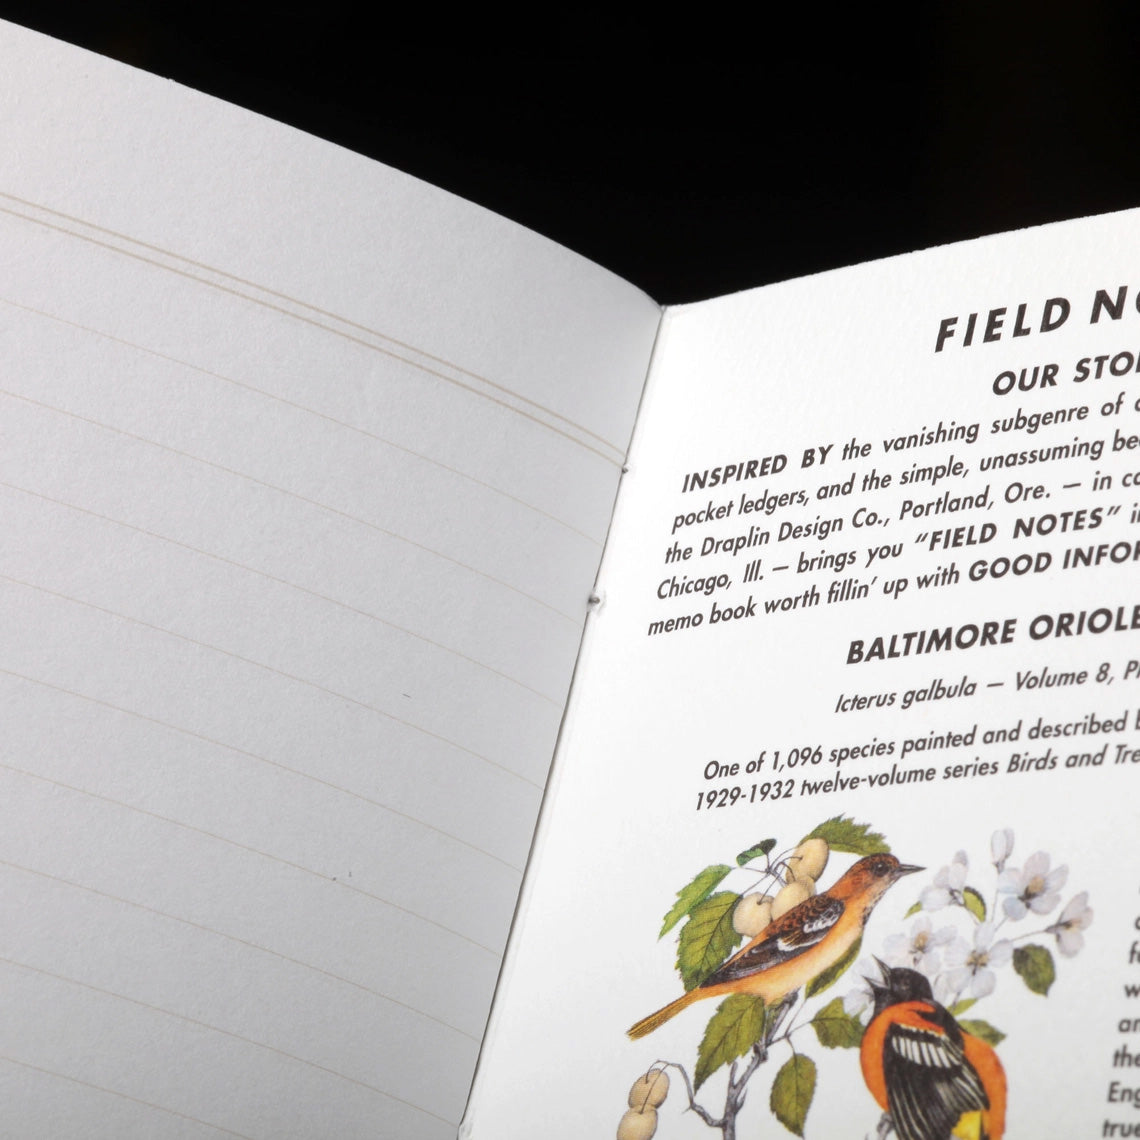 FIELD N
OUR STO
INSPIRED BY the vanishing subgenre of
pocket ledgers, and the simple, unassuming be
the Draplin Design Co., Portland, Ore. — in co
Chicago, Ill. — brings you “FIELD NOTES” in
memo book worth fillin’ up with GOOD INFOR
BALTIMORE ORIOLE
Icterus galbula — Volume 8, P
One of 1,096 species painted and described b
1929-1932 twelve-volume series Birds and Tre
fo
w
an
the
Eng
true